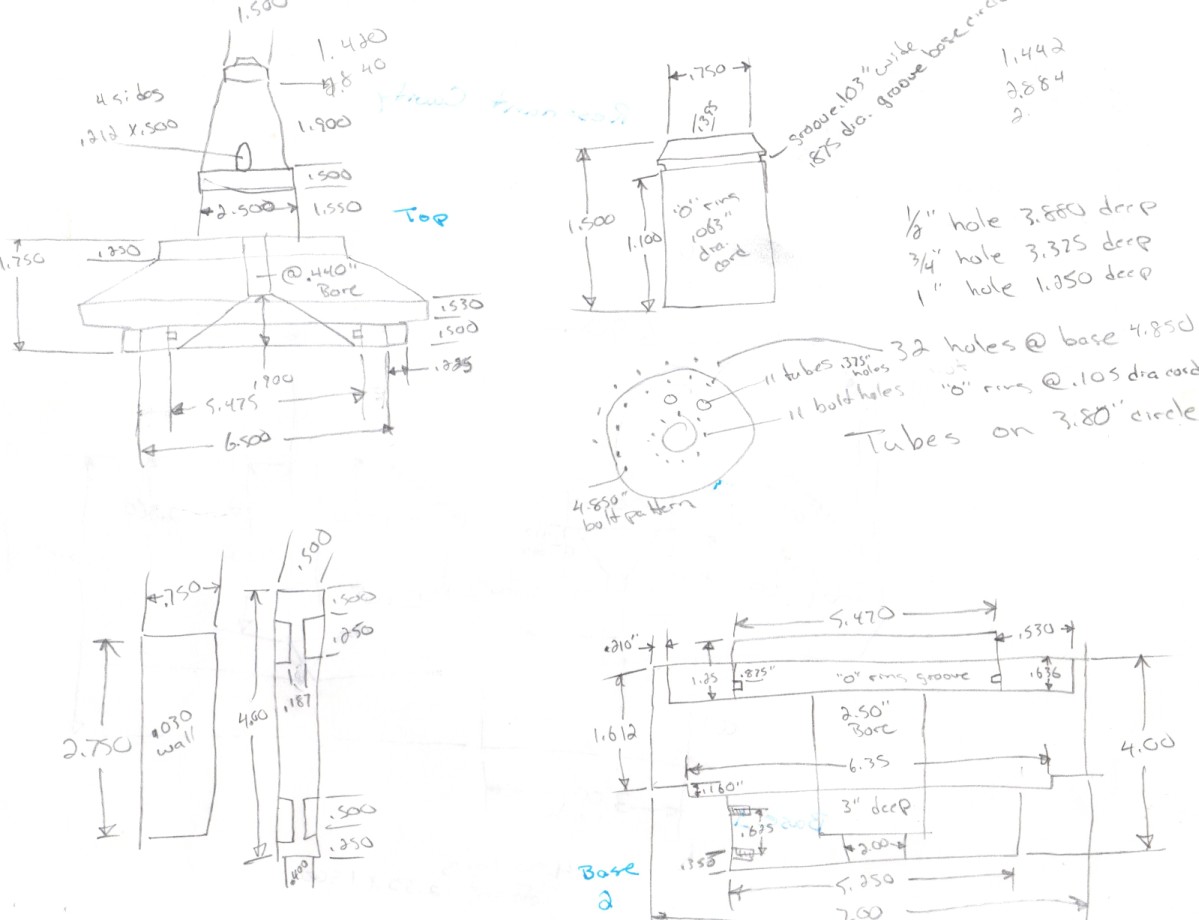 1.500
1.420
.840
4 sides
.212 X .500
1.900
.500
2.500
1.550
Top
1.750
.250
@ .440"
Bore
.530
.500
.900
5.475
6.500
.750
.395
groove .103" wide
.875 dia. groove base
1.442
2.884
2.
1.500
1.100
"O" ring
.063"
dia.
cord
1/2" hole 3.880 deep
3/4" hole 3.325 deep
1" hole 1.250 deep
32 holes @ base 4.850
11 tubes .375"
holes
11 bolt holes
"O" ring @ .105 dia cord
Tubes on 3.80" circle
4.850"
bolt pattern
.750
2.750
.030
wall
.500
.500
.250
.187
4.00
.500
.250
.400
5.470
.210"
.530
1.25
.875"
"O" ring groove
.636
1.612
2.50"
Bore
4.00
6.35
.160"
3" deep
.625
.350
2.00
5.250
7.00
Base
2